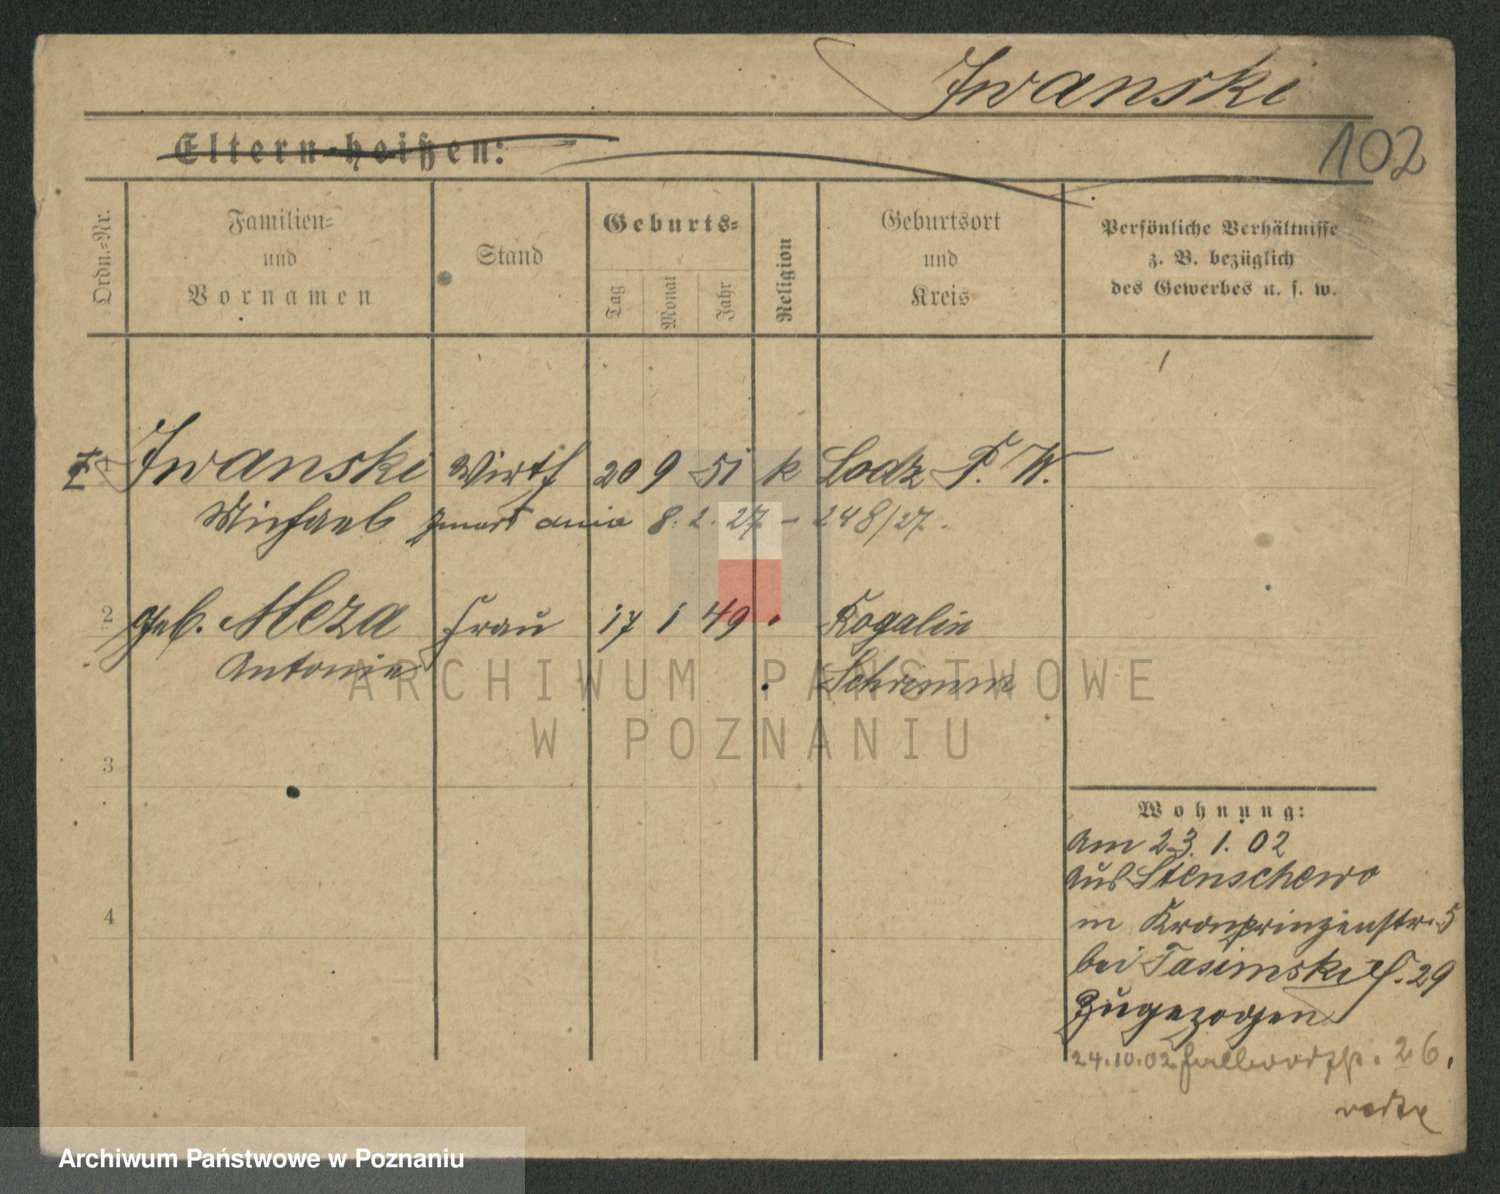 Iwanski
102
Eltern heißen:
Ordn.-Nr.
Familien-
und
Vornamen
Stand
Geburts-
Tag
Monat
Jahr
Religion
Geburtsort
und
Kreis
Persönliche Verhältnisse
z. B. bezüglich
des Gewerbes u. s. w.
1 Iwanski Wirth 20 9 51 k Lodz P. W.
Michael 8. 2. 27 – 248/27.
2 geb. Meza Frau 17 1 49 " Rogalin
Antonie Schrimm
ARCHIWUM PAŃSTWOWE
W POZNANIU
3
4
Wohnung:
Am 23. 1. 02
aus Stenschewo
in Kronprinzenstr. 5
bei Tasimski 29
Zugezogen
24.10.02 26.
Archiwum Państwowe w Poznaniu